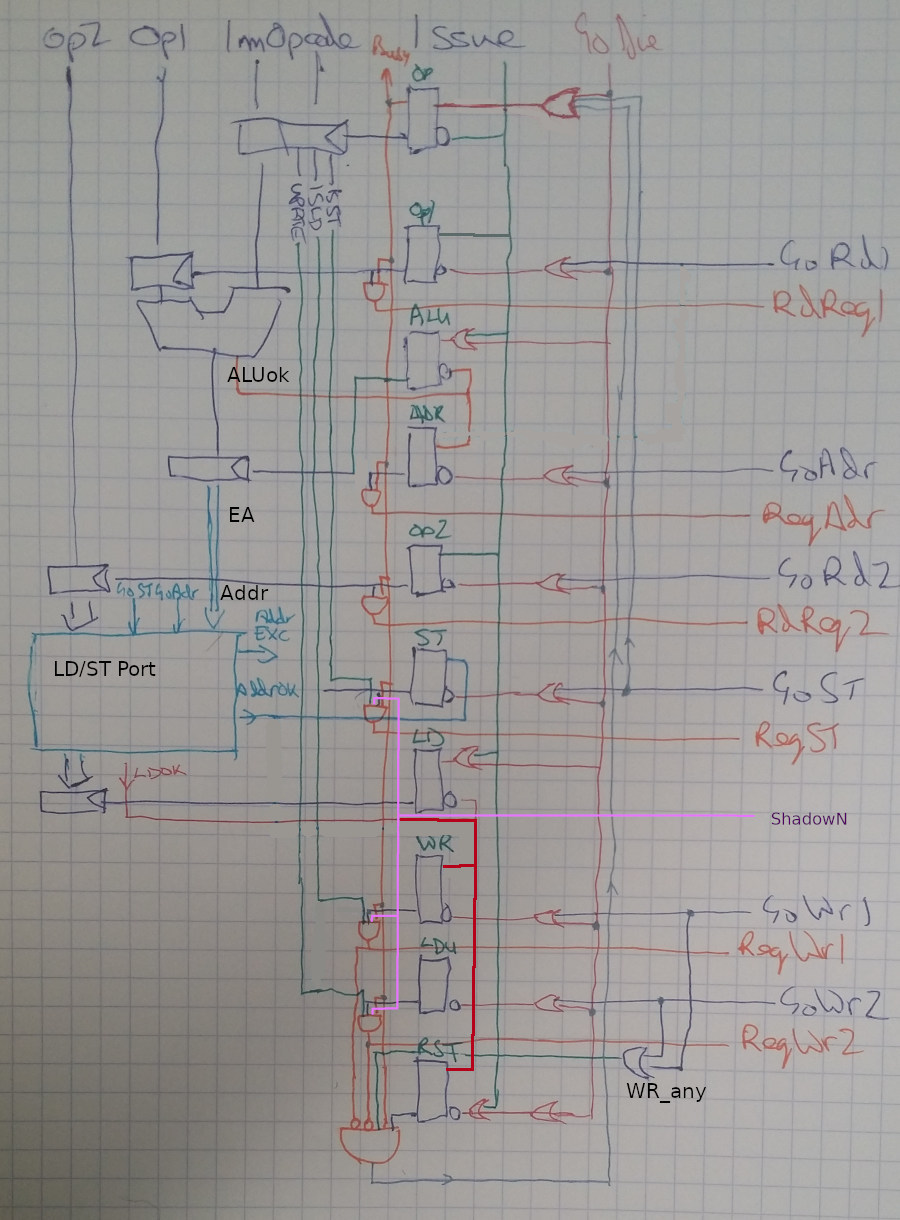 Op2 Op1 Imm Opcode Issue GoDie
Busy
OP
WRATE ISLD ISST
Op1
GoRd1
RdReq1
ALU
ALUok
ADR
GoAdr
EA
ReqAdr
Op2
GoRd2
GoST GoAdr
Addr
RdReq2
Addr
EXC
ST
LD/ST Port
AddrOK
GoST
ReqST
LD
LDOK
ShadowN
WR
GoWr1
ReqWr1
LDU
GoWr2
ReqWr2
RST
WR_any